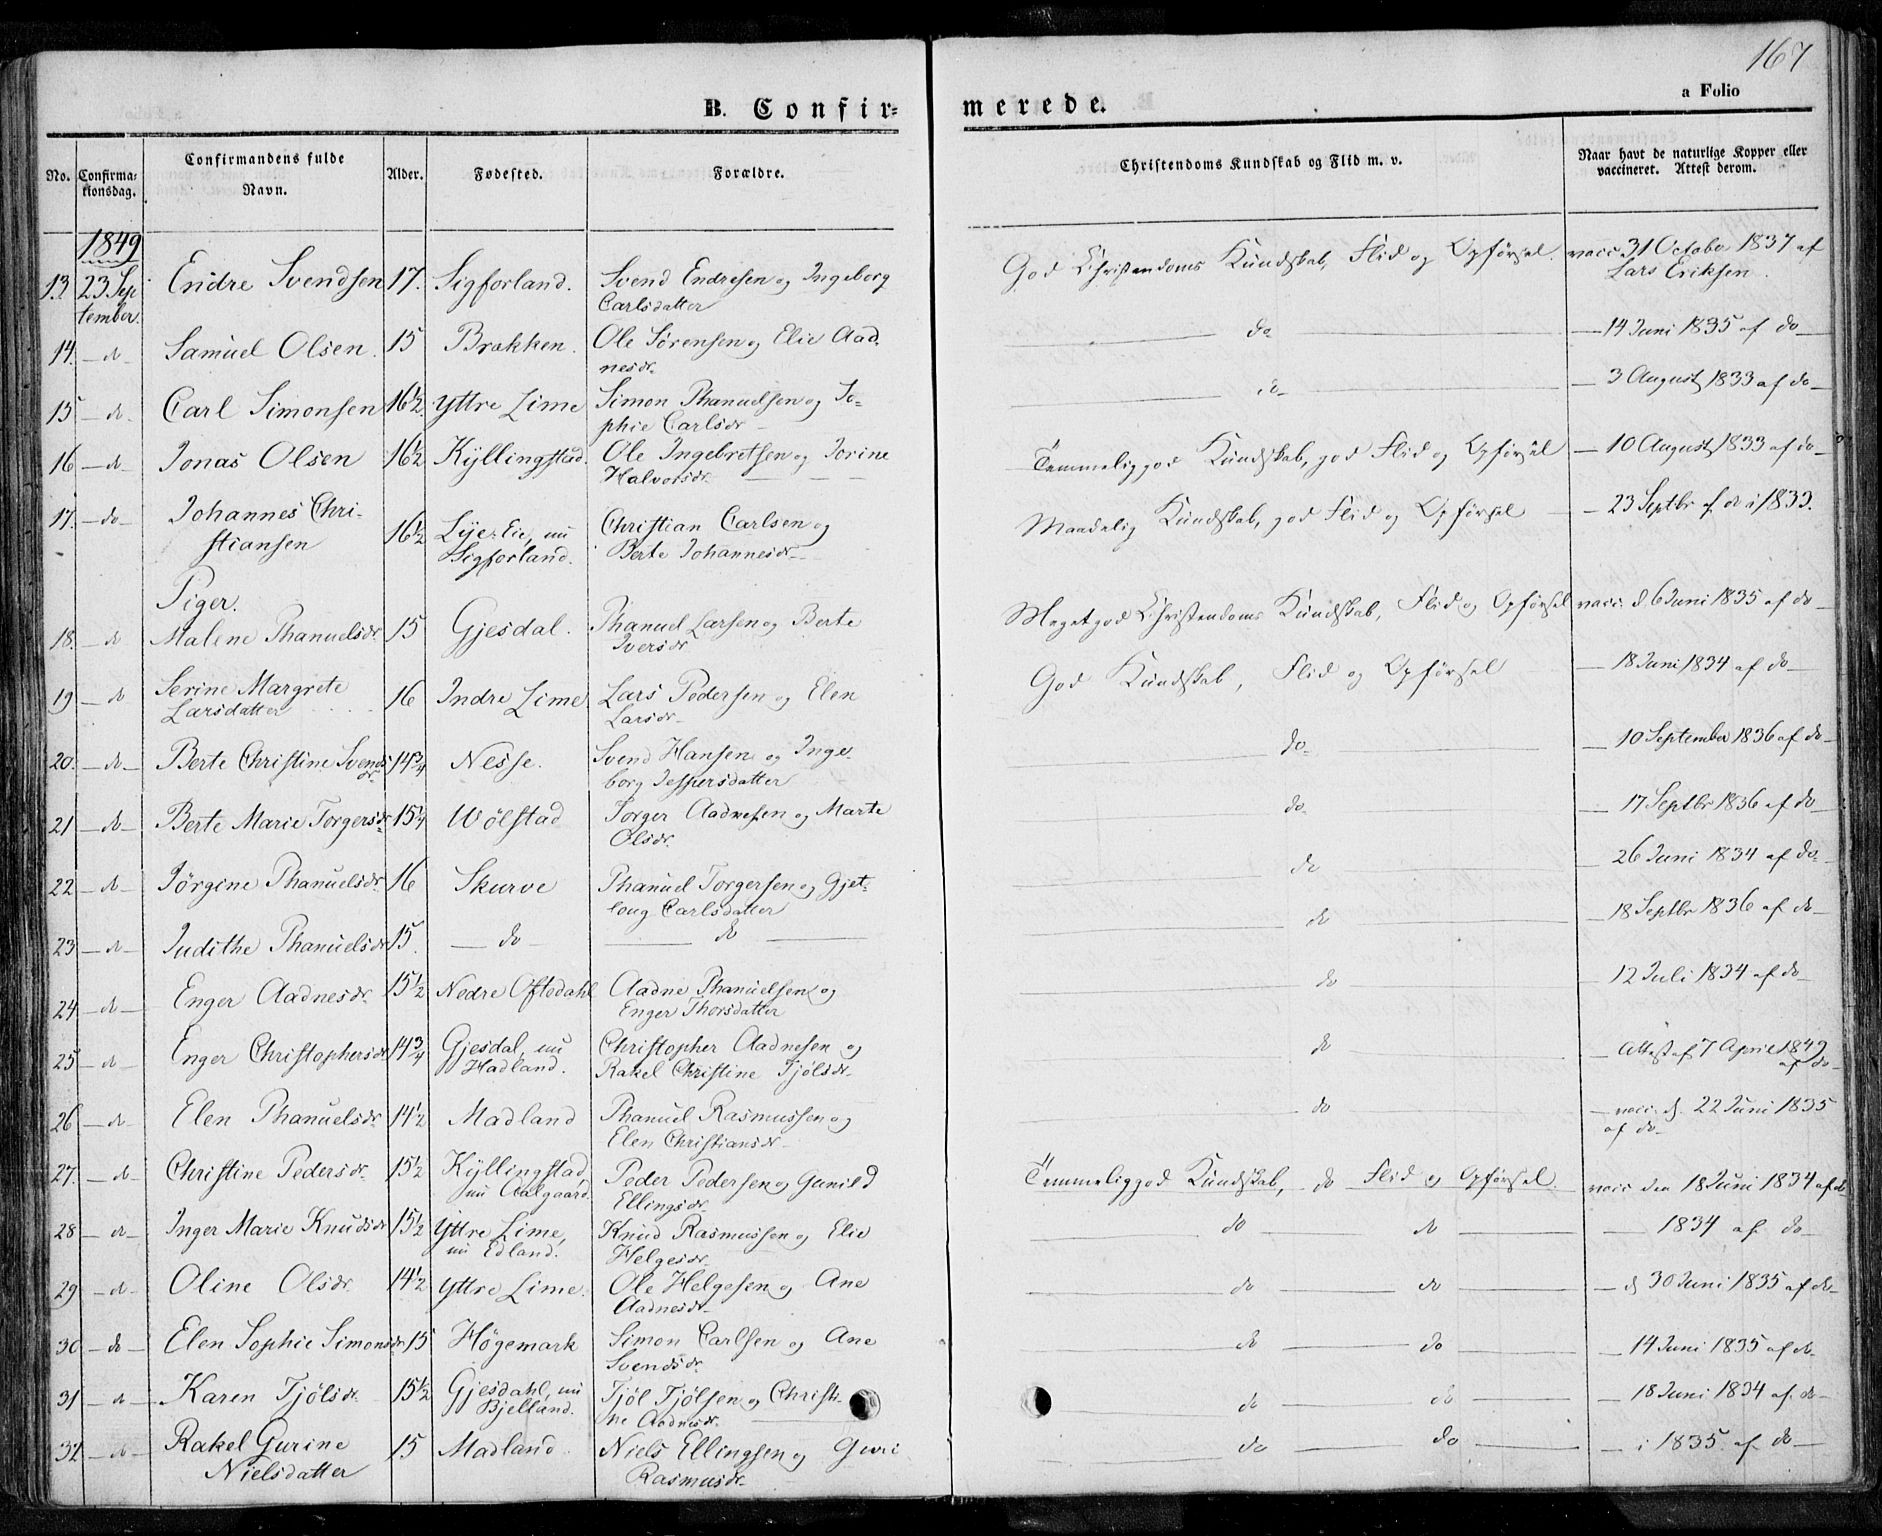 167
a Folio
B. Confir-
merede.
No.
Confirma-
tionsdag.
Confirmandens fulde
Navn.
Alder.
Fødested.
Forældre.
Christendoms Kundskab og Flid m. v.
Naar havt de naturlige Kopper eller
vaccineret. Attest derom.
1849
13. 23 Sep Endre Svendsen 17. Sigforland. Svend Endresen og Ingeborg God Christendoms Kundskab, Flid og Opførsel. vacc. 31 October 1837 af
tember. Carlsdatter Lars Eriksen.
14. - do - Samuel Olsen. 15 Brækken. Ole Sørensen og Elie Aad- do - 14 Juni 1835 af do -
nesdr.
15 - do - Carl Simonsen 16½ Yttre Lime Simon Thanuelsen og So- do - 3 August 1833 af do -
phie Carlsdr.
16 - do - Jonas Olsen 16½ Kyllingstad. Ole Ingebretsen og Jorine Temmelig god Kundskab, god Flid og Opførsel - 10 August 1833 af do -
Halvorsdr.
17. - do - Johannes Chri- 16½ Lye-Eie, nu Christian Carlsen og Maadelig Kundskab, god Flid og Opførsel - 23 Septbr af do i 1833.
stiansen Sigforland. Berte Johannesdr.
Piger.
18. - do Malene Thanuelsdr. 15 Gjesdal. Thanuel Larsen og Berte Meget god Christendoms Kundskab, Flid og Opførsel vacc. d. 6 Juni 1835 af do -
Iversdr
19 - do Serine Margrete 16 Indre Lime Lars Pedersen og Elen God Kundskab, Flid og Opførsel - 18 Juni 1834 af do -
Larsdatter Larsdr.
20. - do - Berte Christine Svends 14¾ Nesse. Svend Hansen og Inge- do - 10 September 1836 af do -
dr. borg Jespersdatter
21 - do - Berte Marie Torgersdr 15¼ Wølstad Torger Aadnesen og Marte do - 17 Septbr 1836 af do -
Olsdr.
22 - do - Jørgine Thanuelsdr. 16 Skurve Thanuel Torgersen og Gjet- do - 26 Juni 1834 af do.
loug Carlsdatter
23 - do - Judithe Thanuelsdr 15. - do - do do - 18 Septbr 1836 af do -
24 - do - Enger Aadnesdr. 15½ Nedre Oftedahl Aadne Thanuelsen og do - 12 Juli 1834 af do -
Enger Thorsdatter
25 - do Enger Christophersdr 14¾ Gjesdal, nu Christopher Aadnesen og do - Attest af 7 April 1849
Hadland. Rakel Christine Tjølsdr. af do -
26 - do - Elen Thanuelsdr. 14½ Madland Thanuel Rasmussen og do - vacc. d. 22 Juni 1835
Elen Christiansdr. af do -
27. - do - Christine Pedersdr. 15½ Kyllingstad, Peder Pedersen og Gunild Temmelig god Kundskab, do Flid og Opførsel. vacc den 18 Juni 1834 af do
nu Aalgaard. Ellingsdr.
28 - do - Inger Marie Knudsdr 15½ Yttre Lime, Knud Rasmussen og Elie do do - 1834 af do -
nu Edland. Helgesdr.
29 - do - Oline Olsdr. 14½ Yttre Lime. Ole Helgesen og Ane do do - d 30 Juni 1835 af do -
Aadnesdr.
30 - do - Elen Sophie Simonsdr 15 Høgemark Simon Carlsen og Ane do do - 14 Juni 1835 af do -
Svendsdr.
31 - do - Karen Tjølsdr. 15½ Gjesdahl, nu Tjøl Tjølsen og Christi- do do - 18 Juni 1834 af do -
Bjelland. ne Aadnesdr.
32 - do - Rakel Gurine 15 Madland. Niels Ellingsen og Guri do do - i 1835 af do -
Nielsdatter Rasmusdr.